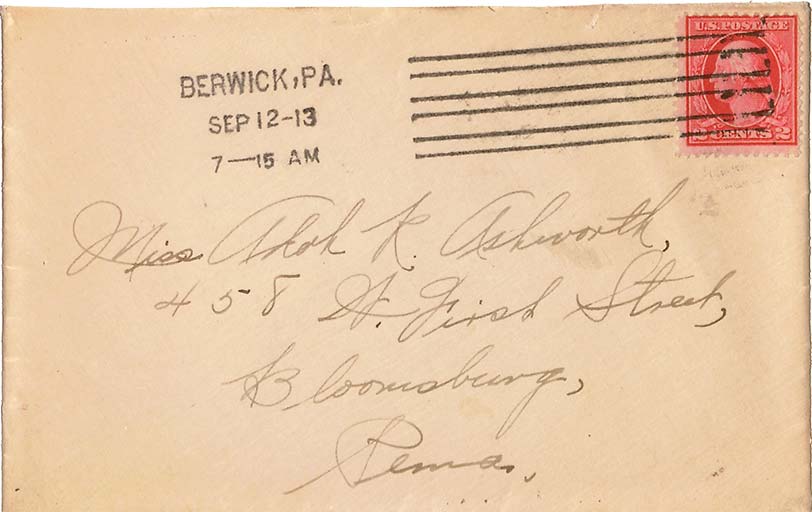 BERWICK, PA.
SEP 12-13
7—15 AM
U.S. POSTAGE
2 CENTS 2
Miss K. Ashworth,
458 W. First Street,
Bloomsburg,
Penna.